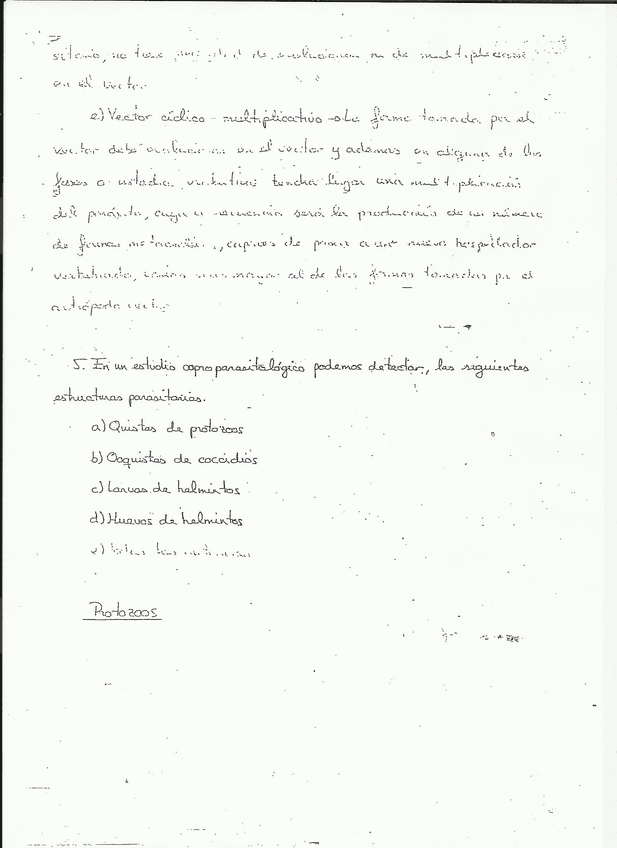 en el vector
e) Vector cíclico - multiplicativo → La forma tomada por el
vector debe evolucionar en el vector y además en alguna de las
fases o estadios evolutivos tendrá lugar una multiplicación
del parásito, cuya consecuencia será la producción de un número
de formas metacíclicas, capaces de pasar a un nuevo hospedador
vertebrado, mayor al de las formas tomadas por el
artrópodo vector
5. En un estudio coproparasitológico podemos detectar, las siguientes
estructuras parasitarias.
a) Quistes de protozoos
b) Ooquistes de coccidios
c) Larvas de helmintos
d) Huevos de helmintos
e) todas las anteriores
Protozoos